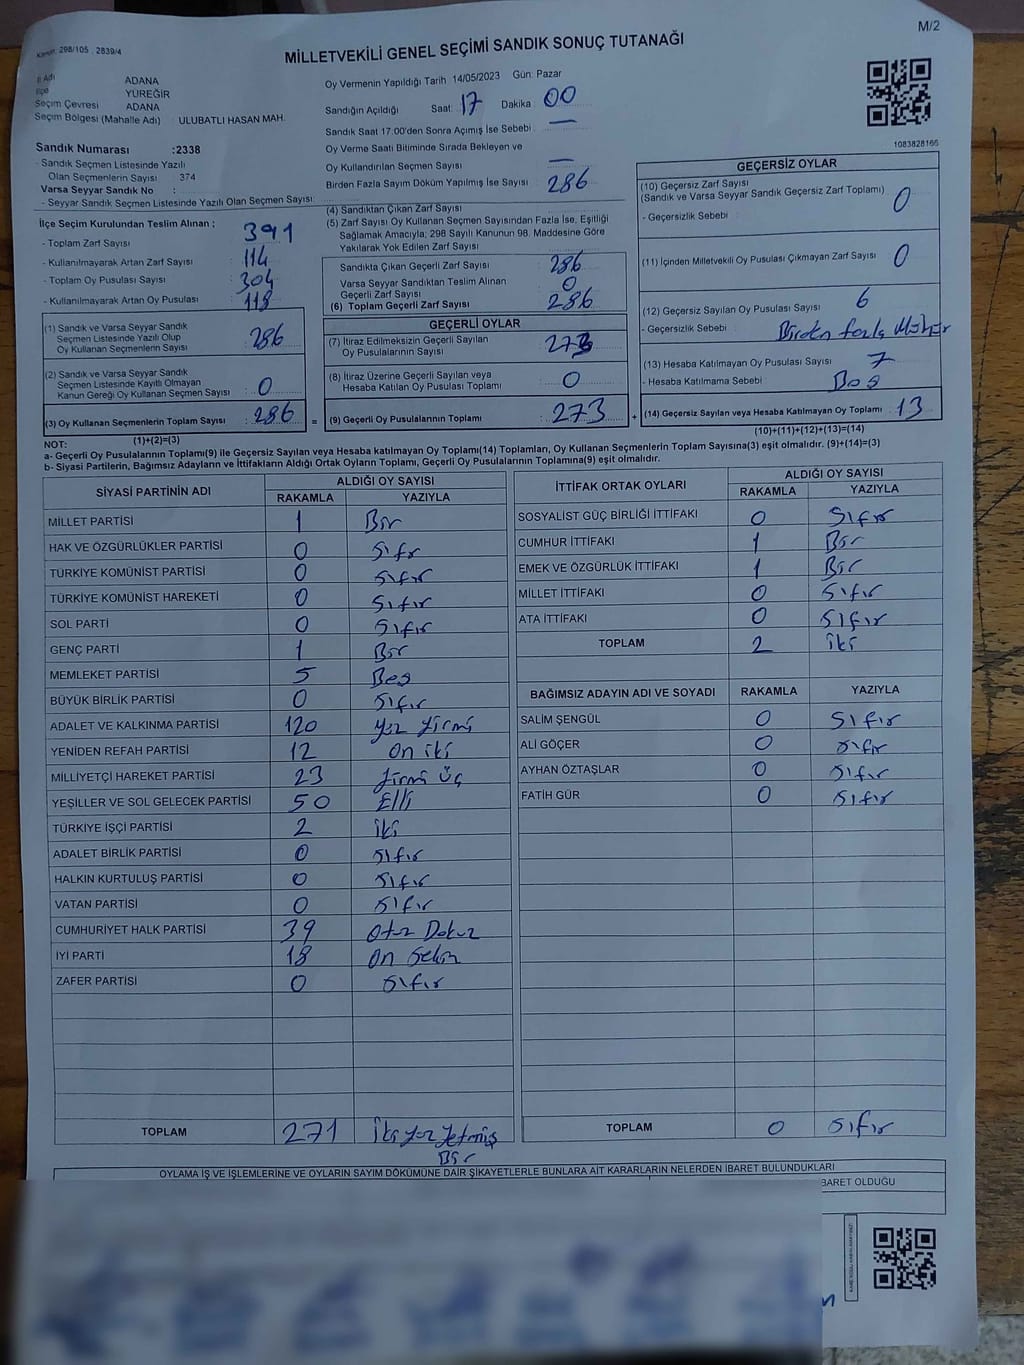 M/2
Kanun: 298/105 . 2839/4
MİLLETVEKİLİ GENEL SEÇİMİ SANDIK SONUÇ TUTANAĞI
İl Adı ADANA
İlçe YÜREĞİR
Seçim Çevresi ADANA
Seçim Bölgesi (Mahalle Adı) : ULUBATLI HASAN MAH.
Sandık Numarası :2338
- Sandık Seçmen Listesinde Yazılı
Olan Seçmenlerin Sayısı : 374
Varsa Seyyar Sandık No :
- Seyyar Sandık Seçmen Listesinde Yazılı Olan Seçmen Sayısı:
Oy Vermenin Yapıldığı Tarih 14/05/2023 Gün: Pazar
Sandığın Açıldığı Saat: 17 Dakika 00
Sandık Saat 17.00'den Sonra Açımış İse Sebebi : —
Oy Verme Saati Bitiminde Sırada Bekleyen ve
Oy Kullandırılan Seçmen Sayısı : —
Birden Fazla Sayım Döküm Yapılmış İse Sayısı : 286
1083828166
İlçe Seçim Kurulundan Teslim Alınan ;
- Toplam Zarf Sayısı : 391
- Kullanılmayarak Artan Zarf Sayısı : 114
- Toplam Oy Pusulası Sayısı : 304
- Kullanılmayarak Artan Oy Pusulası : 118
(1) Sandık ve Varsa Seyyar Sandık
Seçmen Listesinde Yazılı Olup
Oy Kullanan Seçmenlerin Sayısı : 286
(2) Sandık ve Varsa Seyyar Sandık
Seçmen Listesinde Kayıtlı Olmayan
Kanun Gereği Oy Kullanan Seçmen Sayısı : 0
(3) Oy Kullanan Seçmenlerin Toplam Sayısı : 286
(1)+(2)=(3)
(4) Sandıktan Çıkan Zarf Sayısı :
(5) Zarf Sayısı Oy Kullanan Seçmen Sayısından Fazla İse, Eşitliği
Sağlamak Amacıyla; 298 Sayılı Kanunun 98. Maddesine Göre
Yakılarak Yok Edilen Zarf Sayısı :
Sandıkta Çıkan Geçerli Zarf Sayısı : 286
Varsa Seyyar Sandıktan Teslim Alınan
Geçerli Zarf Sayısı : 0
(6) Toplam Geçerli Zarf Sayısı : 286
GEÇERLİ OYLAR
(7) İtiraz Edilmeksizin Geçerli Sayılan
Oy Pusulalarının Sayısı : 273
(8) İtiraz Üzerine Geçerli Sayılan veya
Hesaba Katılan Oy Pusulası Toplamı : 0
= (9) Geçerli Oy Pusulalarının Toplamı : 273 +
GEÇERSİZ OYLAR
(10) Geçersiz Zarf Sayısı
(Sandık ve Varsa Seyyar Sandık Geçersiz Zarf Toplamı) : 0
- Geçersizlik Sebebi :
(11) İçinden Milletvekili Oy Pusulası Çıkmayan Zarf Sayısı : 0
(12) Geçersiz Sayılan Oy Pusulası Sayısı : 6
- Geçersizlik Sebebi : Birden fazla Mühür
(13) Hesaba Katılmayan Oy Pusulası Sayısı : 7
- Hesaba Katılmama Sebebi : Boş
(14) Geçersiz Sayılan veya Hesaba Katılmayan Oy Toplamı : 13
(10)+(11)+(12)+(13)=(14)
NOT:
a- Geçerli Oy Pusulalarının Toplamı(9) ile Geçersiz Sayılan veya Hesaba katılmayan Oy Toplamı(14) Toplamları, Oy Kullanan Seçmenlerin Toplam Sayısına(3) eşit olmalıdır. (9)+(14)=(3)
b- Siyasi Partilerin, Bağımsız Adayların ve İttifakların Aldığı Ortak Oyların Toplamı, Geçerli Oy Pusulalarının Toplamına(9) eşit olmalıdır.
SİYASİ PARTİNİN ADI ALDIĞI OY SAYISI
RAKAMLA YAZIYLA
MİLLET PARTİSİ 1 Bir
HAK VE ÖZGÜRLÜKLER PARTİSİ 0 Sıfır
TÜRKİYE KOMÜNİST PARTİSİ 0 Sıfır
TÜRKİYE KOMÜNİST HAREKETİ 0 Sıfır
SOL PARTİ 0 Sıfır
GENÇ PARTİ 1 Bir
MEMLEKET PARTİSİ 5 Beş
BÜYÜK BİRLİK PARTİSİ 0 Sıfır
ADALET VE KALKINMA PARTİSİ 120 Yüz Yirmi
YENİDEN REFAH PARTİSİ 12 On iki
MİLLİYETÇİ HAREKET PARTİSİ 23 Yirmi Üç
YEŞİLLER VE SOL GELECEK PARTİSİ 50 Elli
TÜRKİYE İŞÇİ PARTİSİ 2 iki
ADALET BİRLİK PARTİSİ 0 Sıfır
HALKIN KURTULUŞ PARTİSİ 0 Sıfır
VATAN PARTİSİ 0 Sıfır
CUMHURİYET HALK PARTİSİ 39 Otuz Dokuz
İYİ PARTİ 18 On Sekiz
ZAFER PARTİSİ 0 Sıfır
TOPLAM 271 İki Yüz Yetmiş
Bir
İTTİFAK ORTAK OYLARI ALDIĞI OY SAYISI
RAKAMLA YAZIYLA
SOSYALİST GÜÇ BİRLİĞİ İTTİFAKI 0 Sıfır
CUMHUR İTTİFAKI 1 Bir
EMEK VE ÖZGÜRLÜK İTTİFAKI 1 Bir
MİLLET İTTİFAKI 0 Sıfır
ATA İTTİFAKI 0 Sıfır
TOPLAM 2 iki
BAĞIMSIZ ADAYIN ADI VE SOYADI RAKAMLA YAZIYLA
SALİM ŞENGÜL 0 Sıfır
ALİ GÖÇER 0 Sıfır
AYHAN ÖZTAŞLAR 0 Sıfır
FATİH GÜR 0 Sıfır
TOPLAM 0 Sıfır
OYLAMA İŞ VE İŞLEMLERİNE VE OYLARIN SAYIM DÖKÜMÜNE DAİR ŞİKAYETLERLE BUNLARA AİT KARARLARIN NELERDEN İBARET BULUNDUKLARI
BARET OLDUĞU